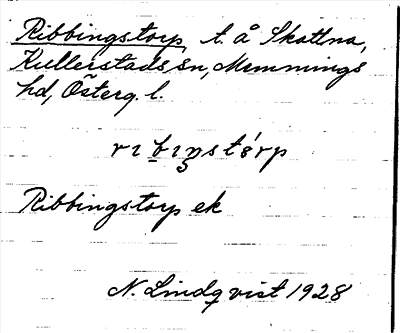 Ribbingstorp, t. å Skattna,
Kullerstads sn, Memmings
hd, Österg. l.
Ribbingstorp ek
N. Lindqvist 1928